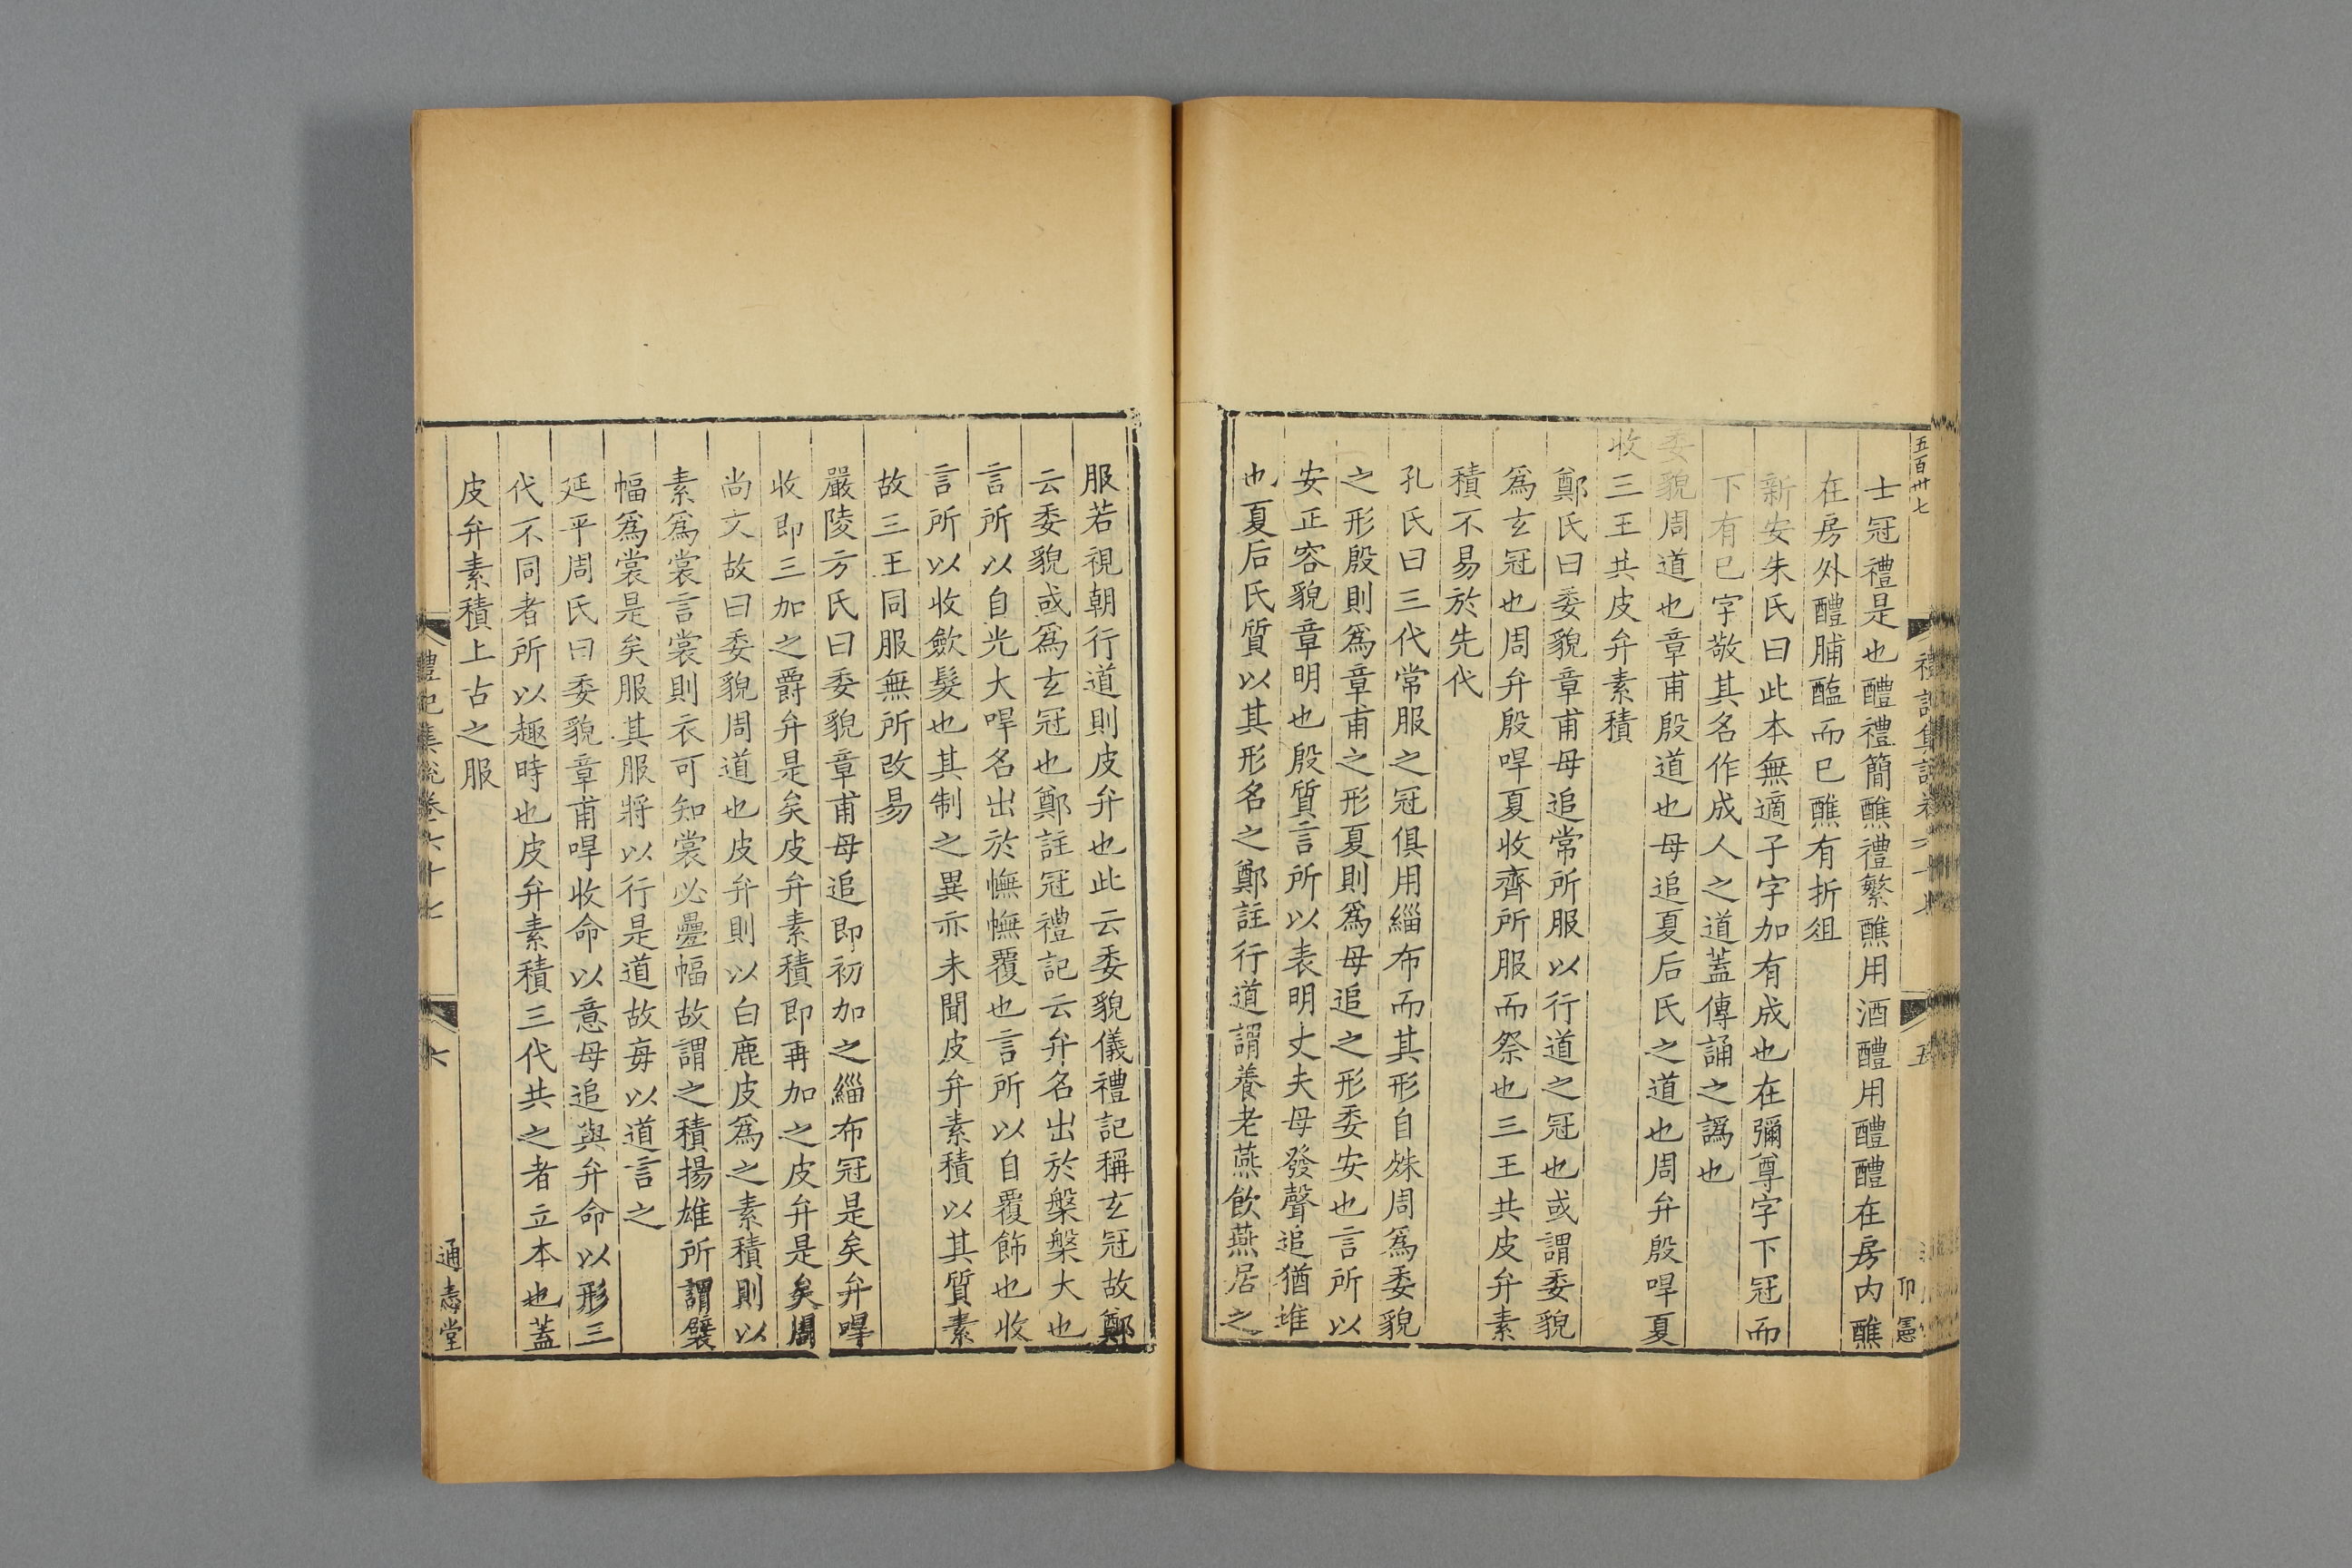 五百卅七
禮記集說卷六十七
五
士冠禮是也醴禮簡醮禮繁醮用酒醴用醴醴在房內醮
在房外醴脯醢而已醮有折俎
新安朱氏曰此本無適子字加有成也在彌尊字下冠而
下有已字敬其名作成人之道蓋傳誦之譌也
委貌周道也章甫殷道也毋追夏后氏之道也周弁殷哻夏
收三王共皮弁素積
鄭氏曰委貌章甫毋追常所服以行道之冠也或謂委貌
爲玄冠也周弁殷哻夏收齊所服而祭也三王共皮弁素
積不易於先代
孔氏曰三代常服之冠俱用緇布而其形自殊周爲委貌
之形殷則爲章甫之形夏則爲毋追之形委安也言所以
安正容貌章明也殷質言所以表明丈夫毋發聲追猶堆
也夏后氏質以其形名之鄭註行道謂養老燕飮燕居之
服若視朝行道則皮弁也此云委貌儀禮記稱玄冠故鄭
云委貌或爲玄冠也鄭註冠禮記云弁名出於槃槃大也
言所以自光大哻名出於幠幠覆也言所以自覆飾也收
言所以收斂髮也其制之異亦未聞皮弁素積以其質素
故三王同服無所改易
嚴陵方氏曰委貌章甫毋追即初加之緇布冠是矣弁哻
收即三加之爵弁是矣皮弁素積即再加之皮弁是矣周
尚文故曰委貌周道也皮弁則以白鹿皮爲之素積則以
素爲裳言裳則衣可知裳必疊幅故謂之積揚雄所謂襞
幅爲裳是矣服其服將以行是道故毎以道言之
延平周氏曰委貌章甫哻收命以意毋追與弁命以形三
代不同者所以趣時也皮弁素積三代共之者立本也蓋
皮弁素積上古之服
禮記集說卷六十七
六
通志堂